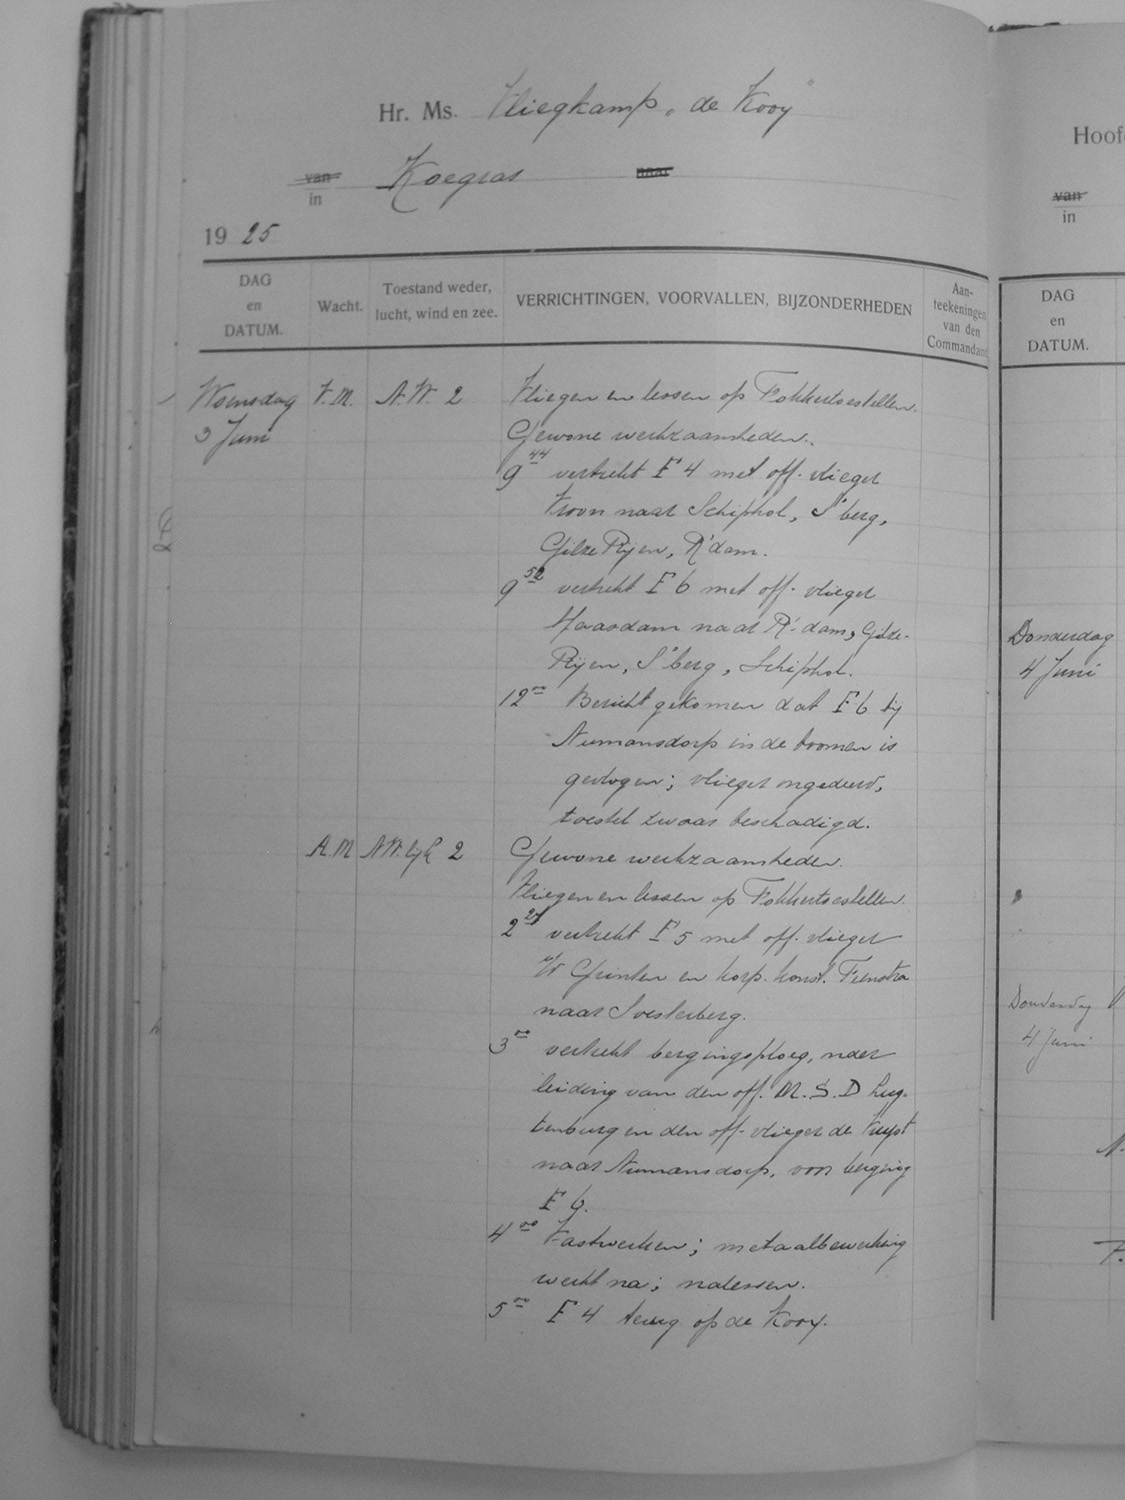 Hr. Ms. Vliegkamp „de Kooy"
van Koegras naar
in
1925
DAG en DATUM. Wacht. Toestand weder, lucht, wind en zee. VERRICHTINGEN, VOORVALLEN, BIJZONDERHEDEN Aan-teekeningen van den Commandant
Woensdag V.M. N.W. 2 Vliegen en lessen op Fokkertoestellen.
3 Juni Gewone werkzaamheden.
9 44 vertrekt F 4 met off. vlieger
Kroon naar Schiphol, S'berg,
Gilze Rijen, R'dam.
9 52 vertrekt F 6 met off. vlieger
Haasdam naar R'dam, Gilze-
Rijen, S'berg, Schiphol.
12 00 Bericht gekomen dat F 6 bij
Numansdorp in de boomen is
gevlogen; vlieger ongedeerd,
toestel zwaar beschadigd.
A.M. 2 Gewone werkzaamheden.
Vliegen en lessen op Fokkertoestellen.
2 27 vertrekt F 5 met off. vlieger
W Grinten en korp. konst. Feenstra
naar Soesterberg.
3 00 vertrekt bergingsploeg, onder
leiding van den off. M.S.D Lug-
tenburg en den off. vlieger de
naar Numansdorp, voor berging
F 6.
4 00 Vastwerken; metaalbewerking
werkt na; nalessen.
5 00 F 4 terug op de Kooy.
Hoof
van
in
DAG
en
DATUM.
Donderdag
4 Juni
Donderdag
4 Juni